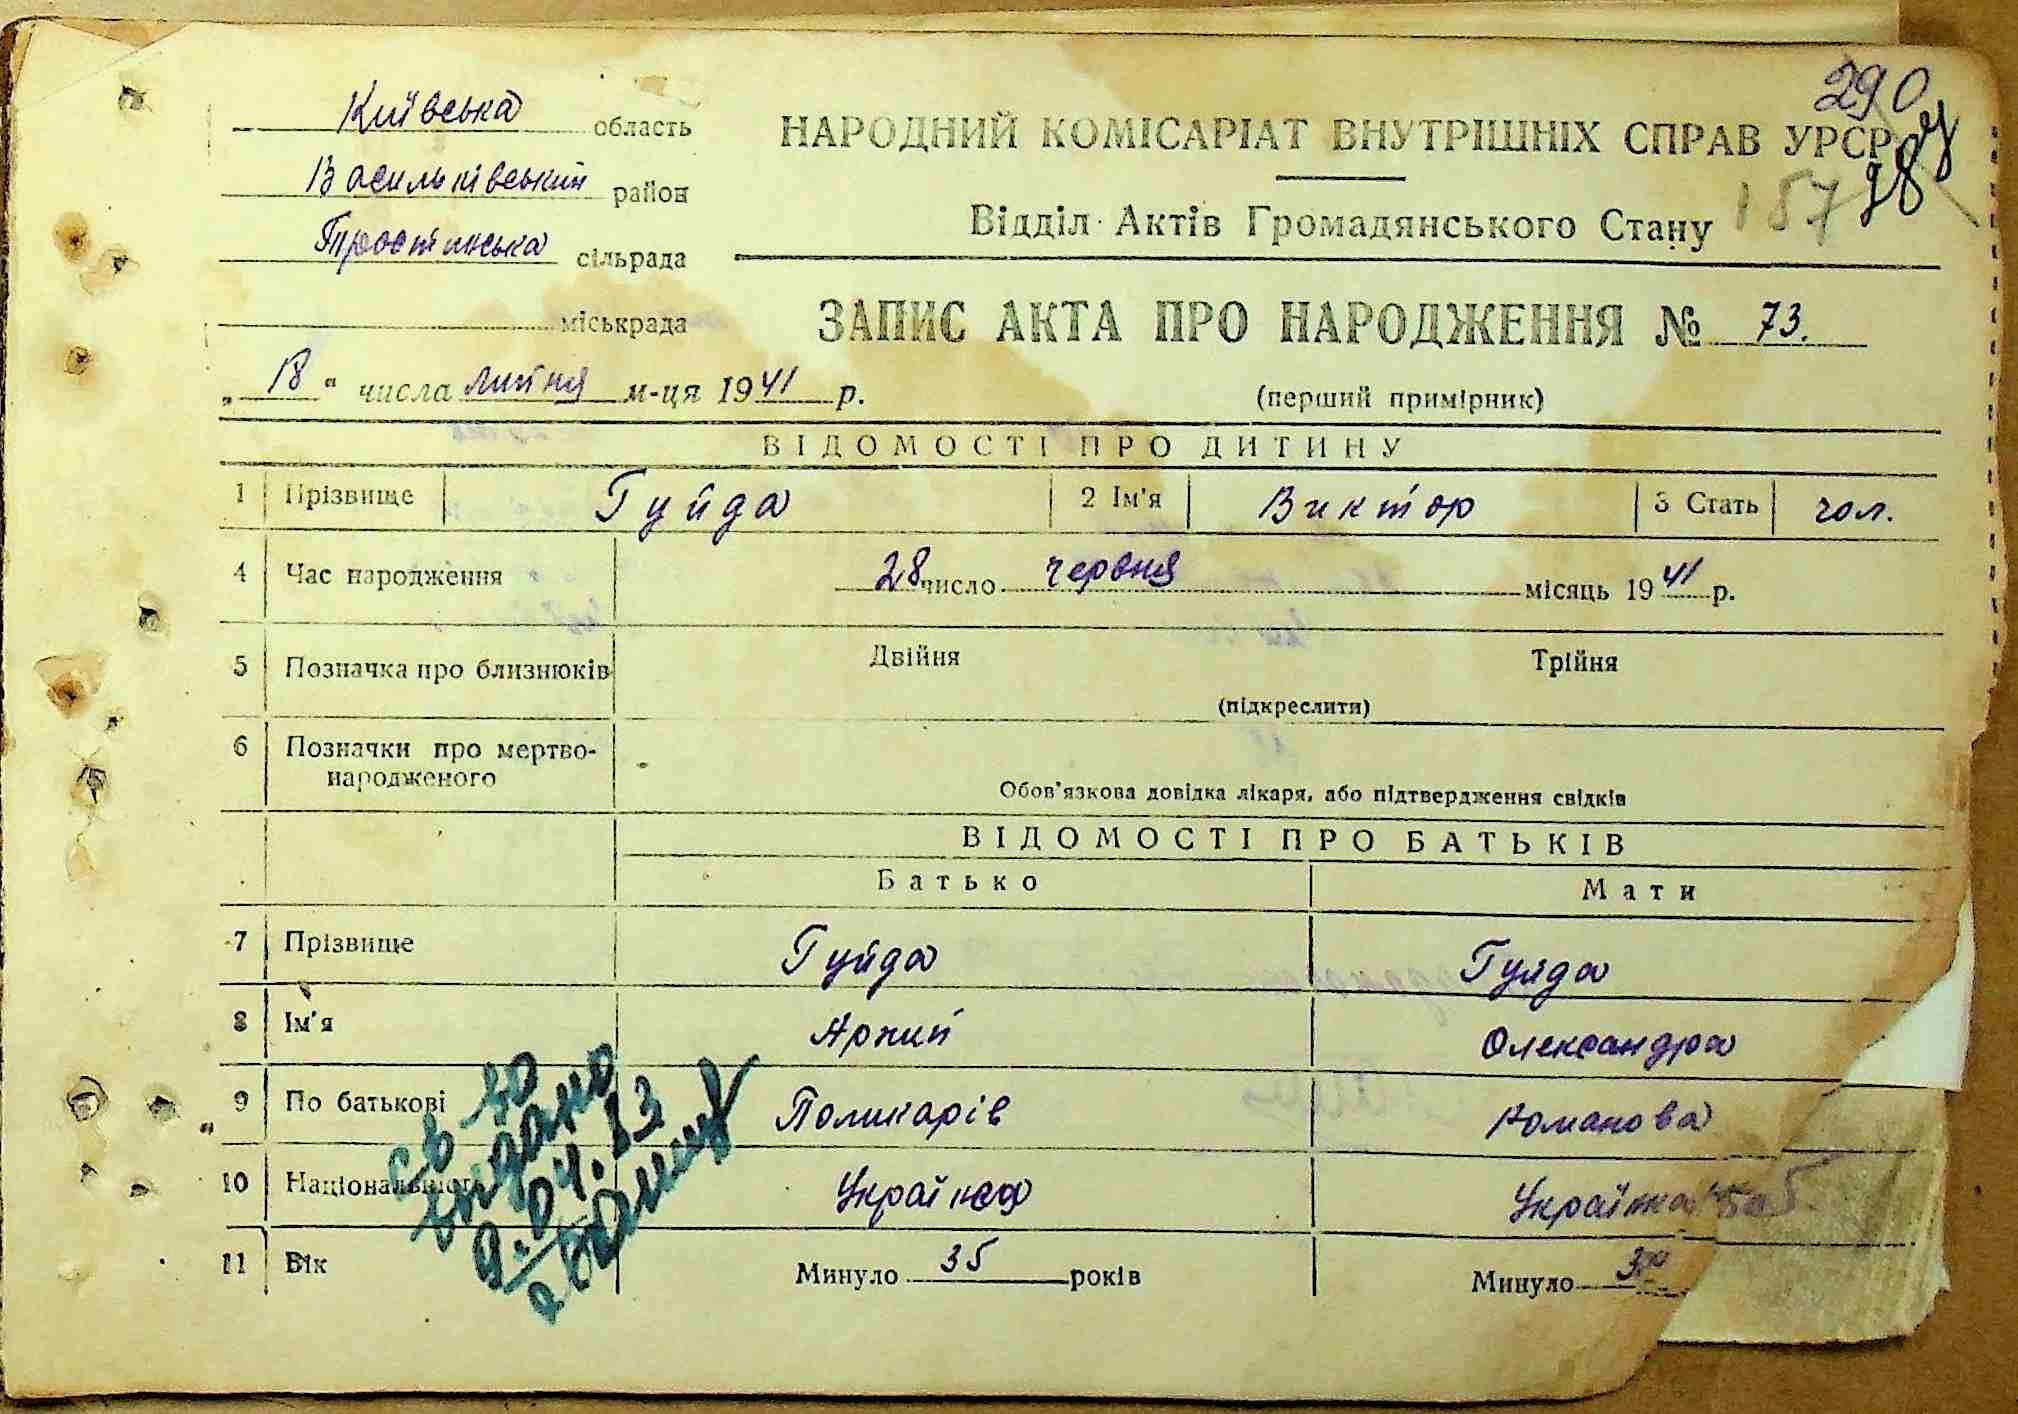 290
287
157
Київська область
Васильківський район
Тростинська сільрада
міськрада
НАРОДНИЙ КОМІСАРІАТ ВНУТРІШНІХ СПРАВ УРСР
Відділ Актів Громадянського Стану
ЗАПИС АКТА ПРО НАРОДЖЕННЯ № 73.
„18“ числа липня м-ця 1941 р.
(перший примірник)
ВІДОМОСТІ ПРО ДИТИНУ
1 Прізвище Гуйда 2 Ім'я Виктор 3 Стать чол.
4 Час народження 28 число червня місяць 1941 р.
5 Позначка про близнюків Двійня Трійня
(підкреслити)
6 Позначки про мертво-
народженого
Обов'язкова довідка лікаря, або підтвердження свідків
ВІДОМОСТІ ПРО БАТЬКІВ
Батько Мати
7 Прізвище Гуйда Гуйда
8 Ім'я Архип Олександра
9 По батькові Поликарів Романова
10 Національність Українец Українка
11 Вік Минуло 35 років Минуло
св-во
видано
9.04.83